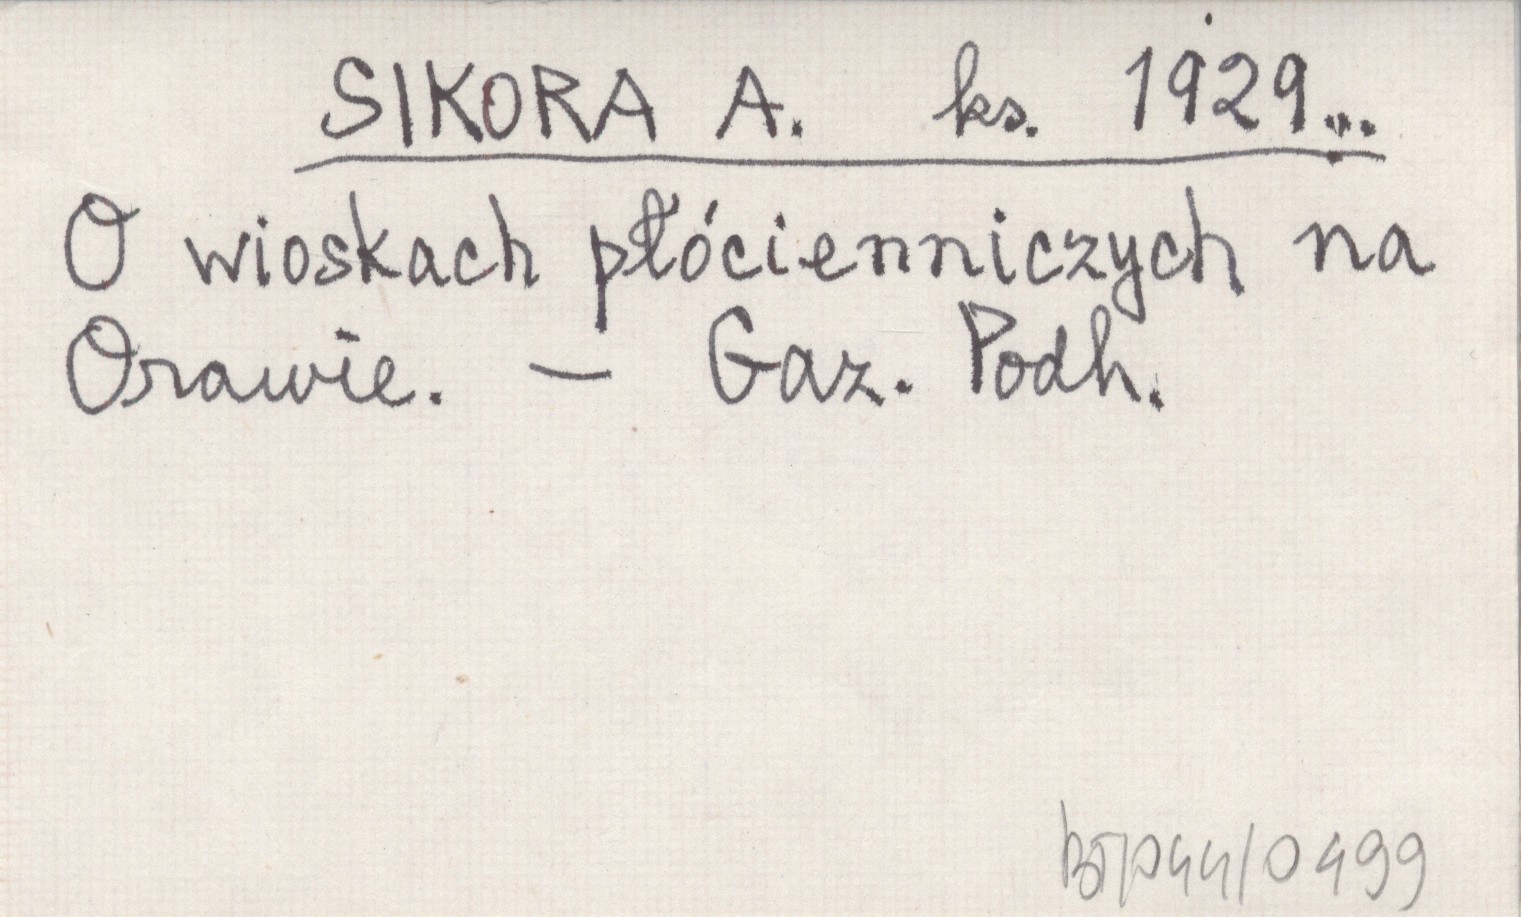 SIKORA A. ks. 1929...
O wioskach płócienniczych na
Orawie. – Gaz. Podh.